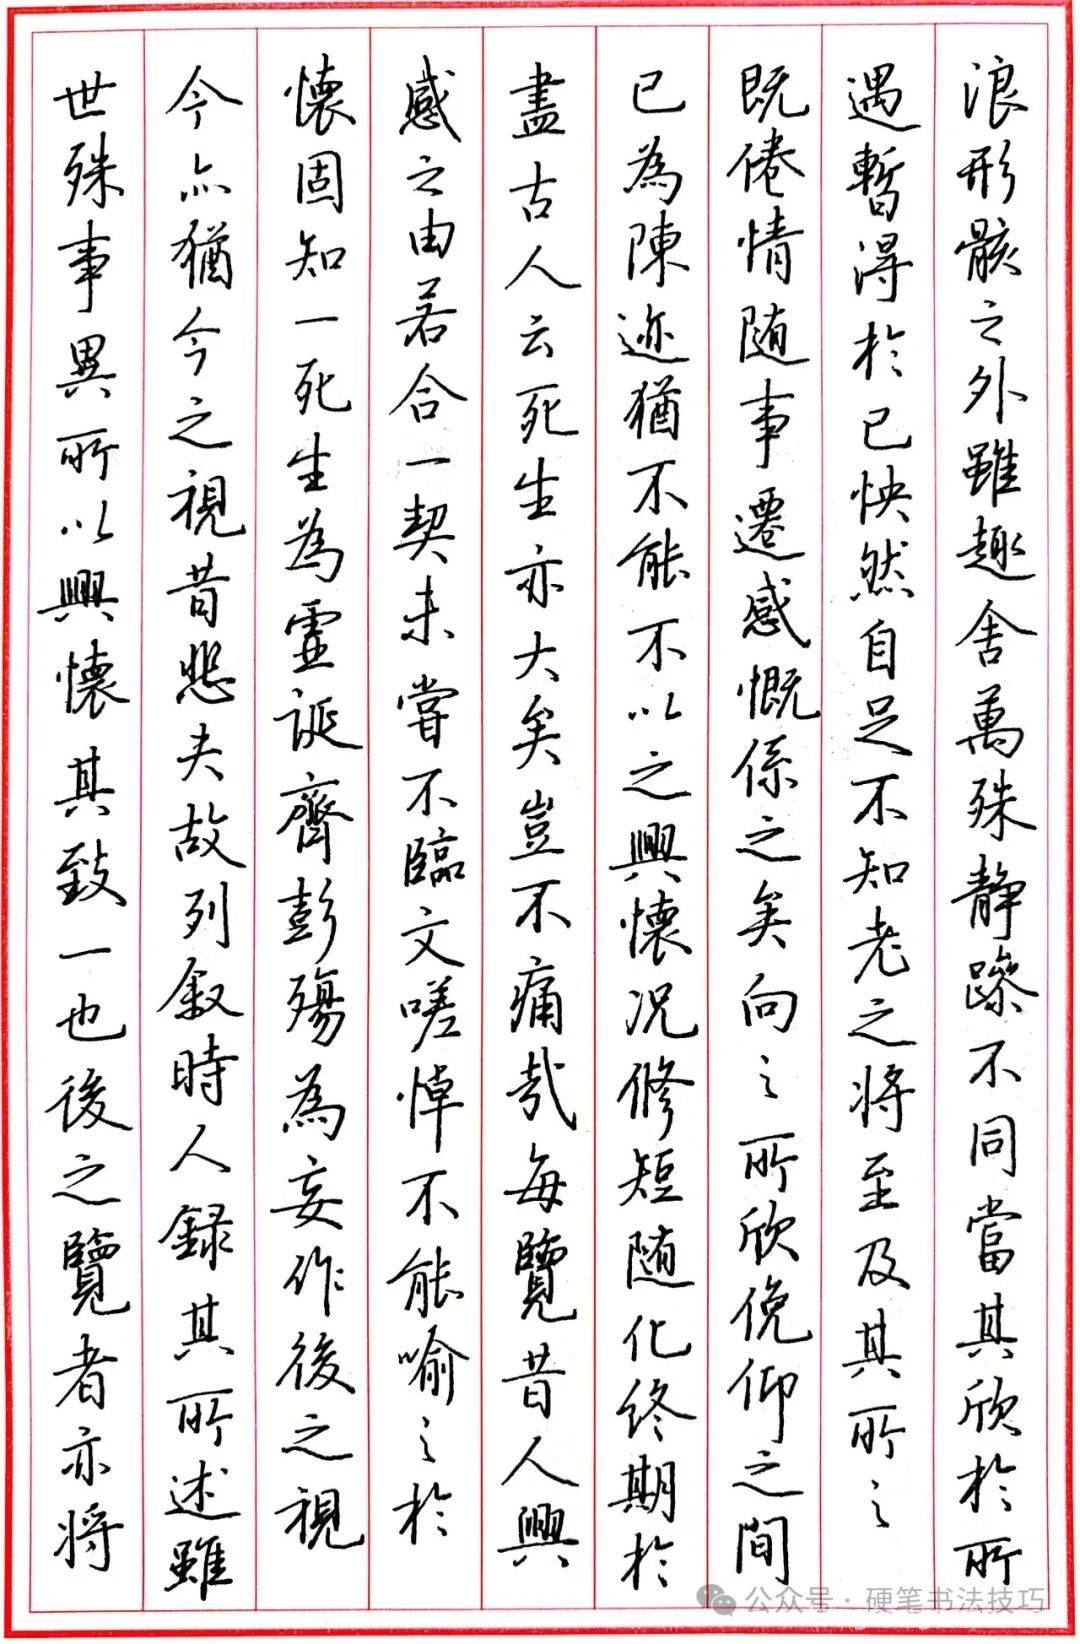 浪形骸之外雖趣舍萬殊静躁不同當其欣於所
遇暫得於己怏然自足不知老之将至及其所之
既倦情随事遷感慨係之矣向之所欣俛仰之間
已為陳迹猶不能不以之興懷况修短随化终期於
盡古人云死生亦大矣豈不痛哉每覽昔人興
感之由若合一契未嘗不臨文嗟悼不能喻之於
懷固知一死生為虛誕齊彭殤為妄作後之視
今亦猶今之視昔悲夫故列叙時人録其所述雖
世殊事異所以興懷其致一也後之覽者亦将
公众号·硬笔书法技巧